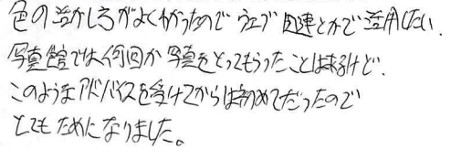 色の活かし方がよくわかったので ウェブ関連とかで活用したい.
写真館では何回か写真をとってもらったことはあるけど.
このようなアドバイスを受けてからは初めてだったので
とてもためになりました。